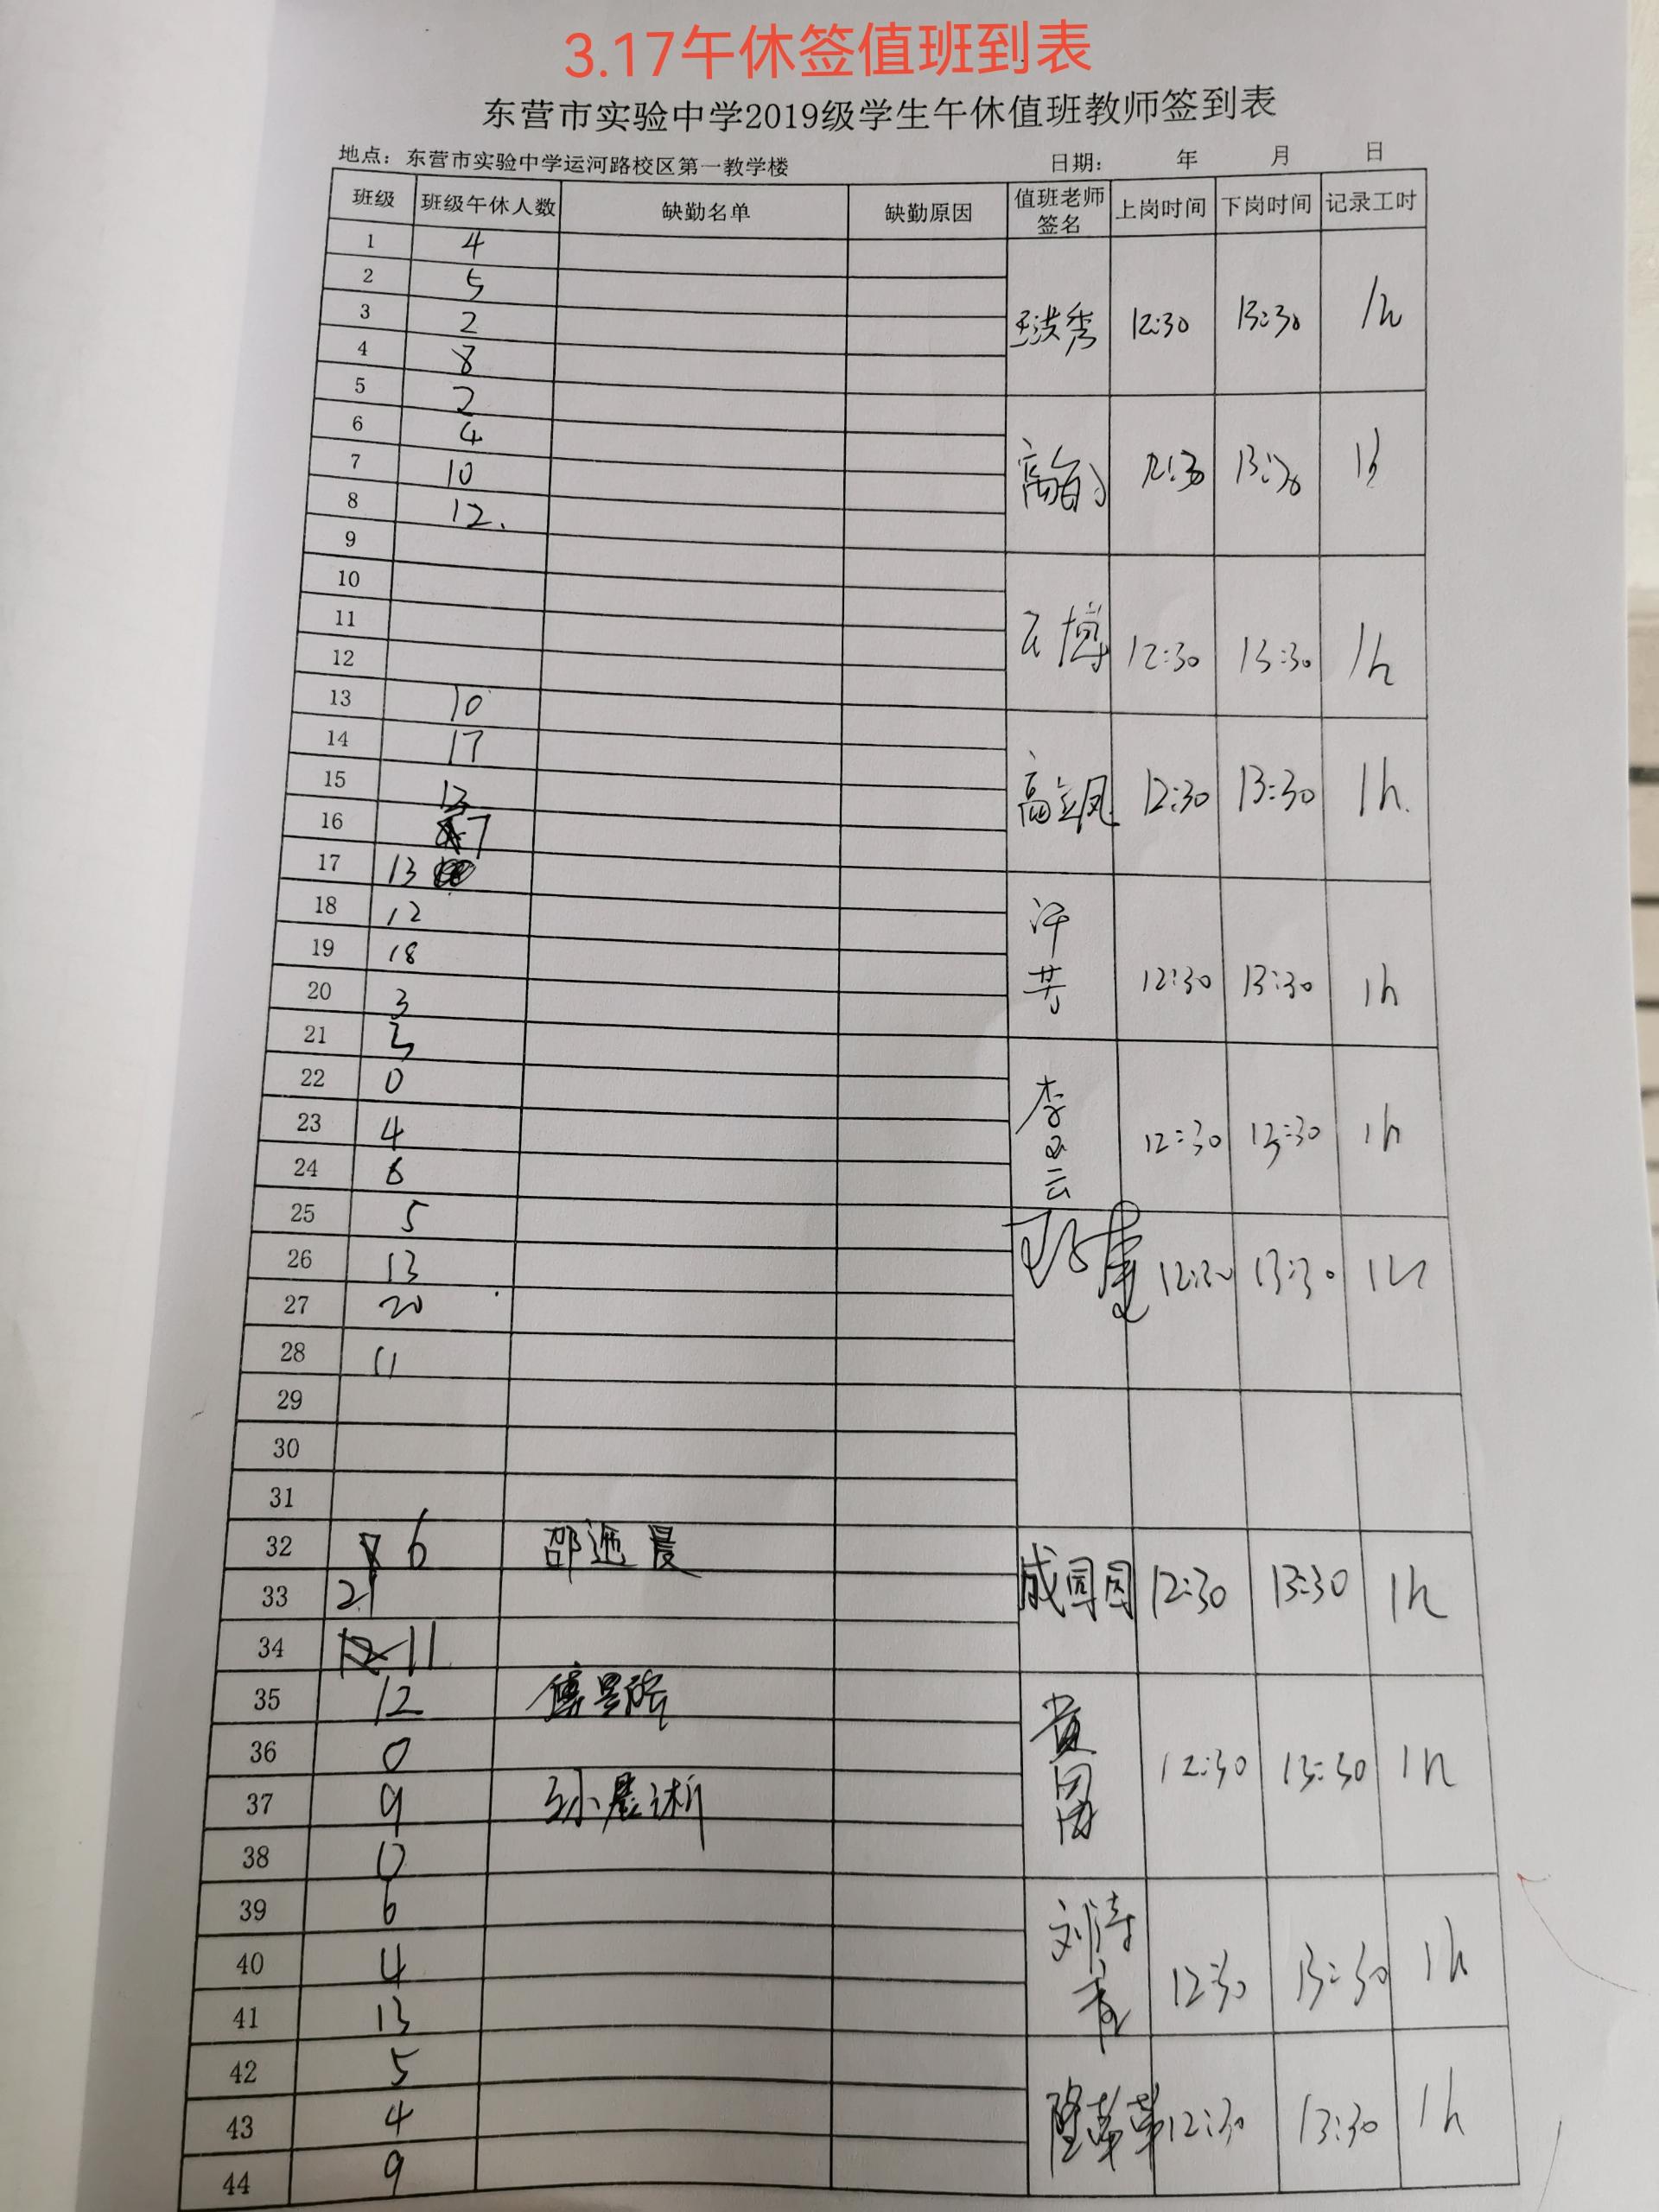 3.17午休签值班到表
东营市实验中学2019级学生午休值班教师签到表
地点：东营市实验中学运河路校区第一教学楼 日期： 年 月 日
班级 班级午休人数 缺勤名单 缺勤原因 值班老师签名 上岗时间 下岗时间 记录工时
1 4
2 5
3 2 王洪秀 12:30 13:30 1h
4 8
5 2
6 4
7 10 12:30 13:30 1h
8 12.
9
10
11 12:30 13:30 1h
12
13 10
14 17
15 13 高立凤 12:30 13:30 1h.
16 7
17 13
18 12
19 18 许芳 12:30 13:30 1h
20 3
21 3
22 0
23 4 李云 12:30 13:30 1h
24 6
25 5
26 13 12:30 13:30 1h
27 20
28 11
29
30
31
32 6 邵 晨
33 21 成园园 12:30 13:30 1h
34 11
35 12
36 0 黄 12:30 13:30 1h
37 9 孙晨
38 0
39 6
40 4 刘 12:30 13:30 1h
41 13
42 5
43 4 12:30 13:30 1h
44 9